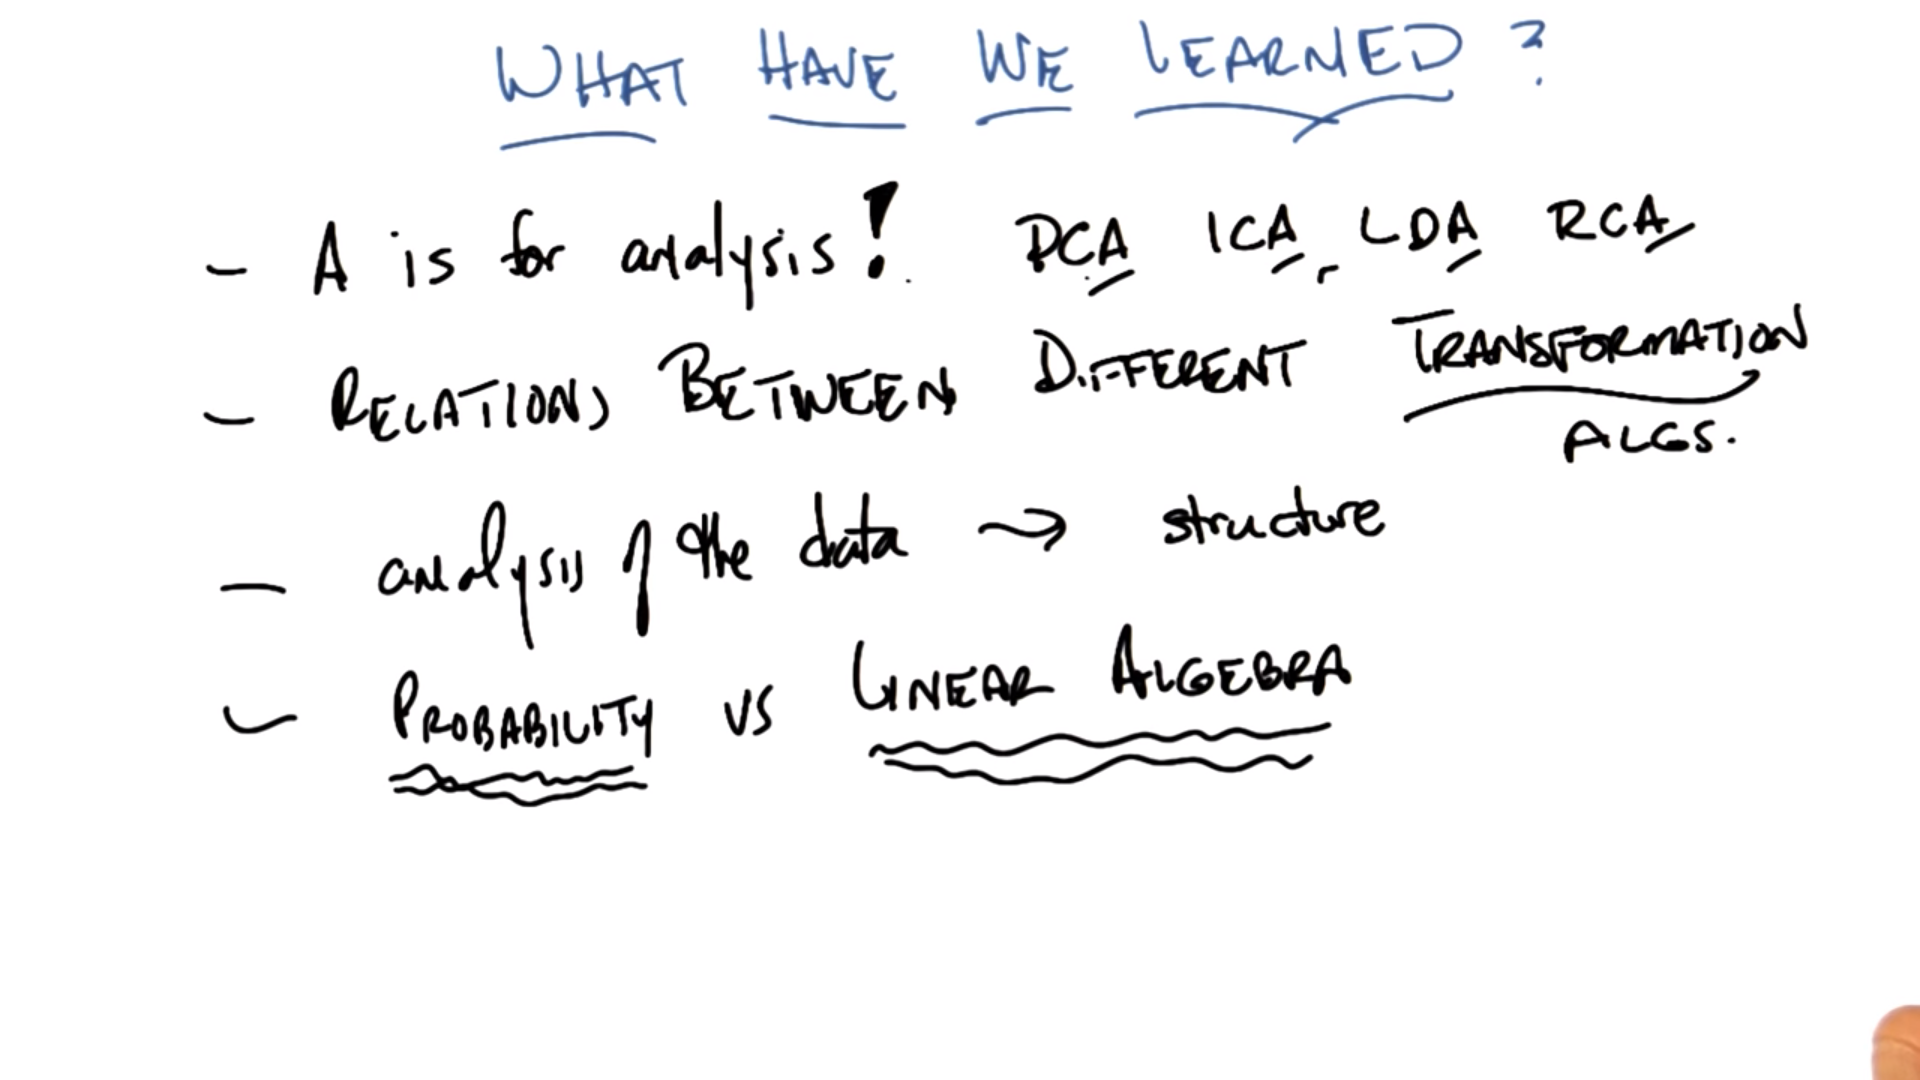 WHAT HAVE WE LEARNED?
- A is for analysis! PCA ICA, LDA RCA
- RELATIONS BETWEEN DIFFERENT TRANSFORMATION
ALGS.
- analysis of the data → structure
- PROBABILITY VS LINEAR ALGEBRA